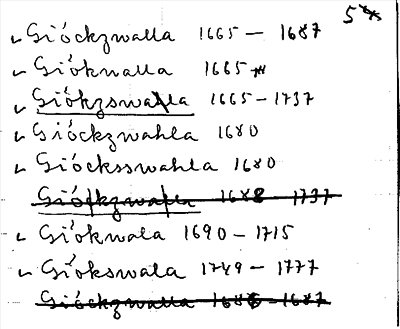 Gióckzwalla 1665 – 1687
Gióknalla 1665
Giókzswalla 1665 – 1737
Gióckzwahla 1680
Giócksswahla 1680
Giókzwalla 1688 – 1737
Gióknala 1690 – 1715
Giókswala 1749 – 1777
Gióckzwalla 1686 – 1687